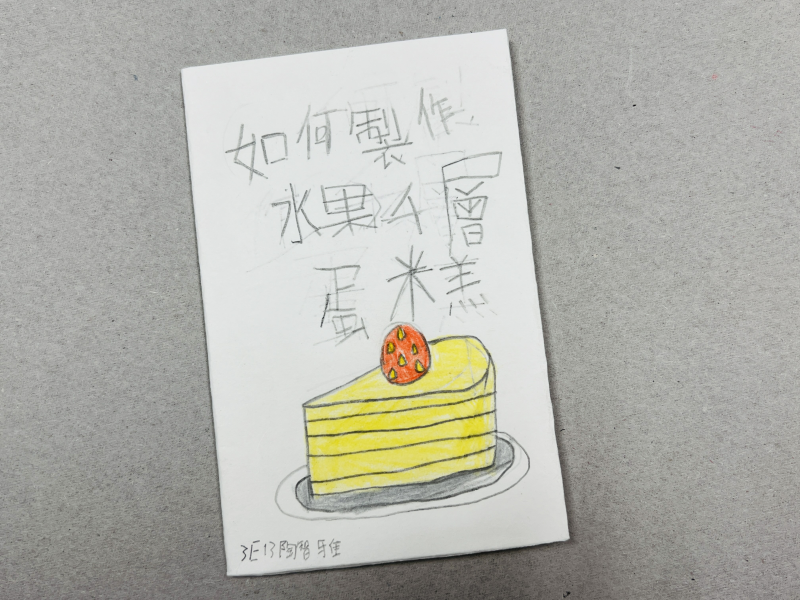 如何製作
水果4層
蛋糕
3E13陶智雅